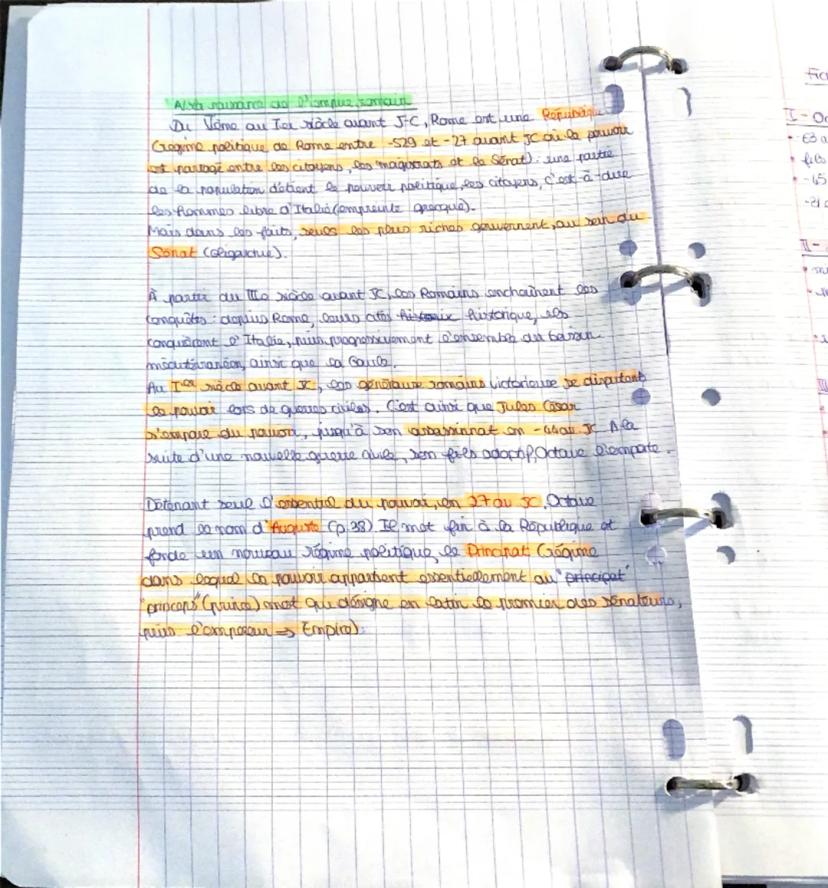 A/ La naissance de l'empire romain
Du Vème au Ier siècle avant J-C, Rome est une République
(régime politique de Rome entre -529 et -27 avant JC où le pouvoir
est partagé entre les citoyens, les magistrats et le Sénat): une partie
de la population détient le pouvoir politique, les citoyens, c'est-à-dire
les hommes libre d'Italie (empreinte grecque).
Mais dans les faits, seules les plus riches gouvernent, au sein du
Sénat (oligarchie).
À partir du IIIe siècle avant JC, les Romains enchaînent les
conquêtes: depuis Rome, leurs cités historique, ils
conquièrent l'Italie, puis progressivement l'ensemble du bassin
méditerranéen, ainsi que la Gaule.
Au Ier siècle avant JC, les généraux romains victorieuse se disputent
le pouvoir lors de guerres civiles. C'est ainsi que Jules César
s'empare du pouvoir, jusqu'à son assassinat en -44 av JC A la
suite d'une nouvelle guerre civile, son fils adoptif, Octave l'emporte.
Détenant seul l'essentiel du pouvoir, en 27 av JC, Octave
prend le nom d'Auguste (p.38) Il met fin à la République et
fonde un nouveau régime politique, le Principat (régime
dans lequel le pouvoir appartient essentiellement au "principat"
"princeps" (prince) mot qui désigne en latin le premier des sénateurs,
puis l'empereur => Empire).
I - Oc
• 63 a
• fils
• -45
-21 a
II -
III